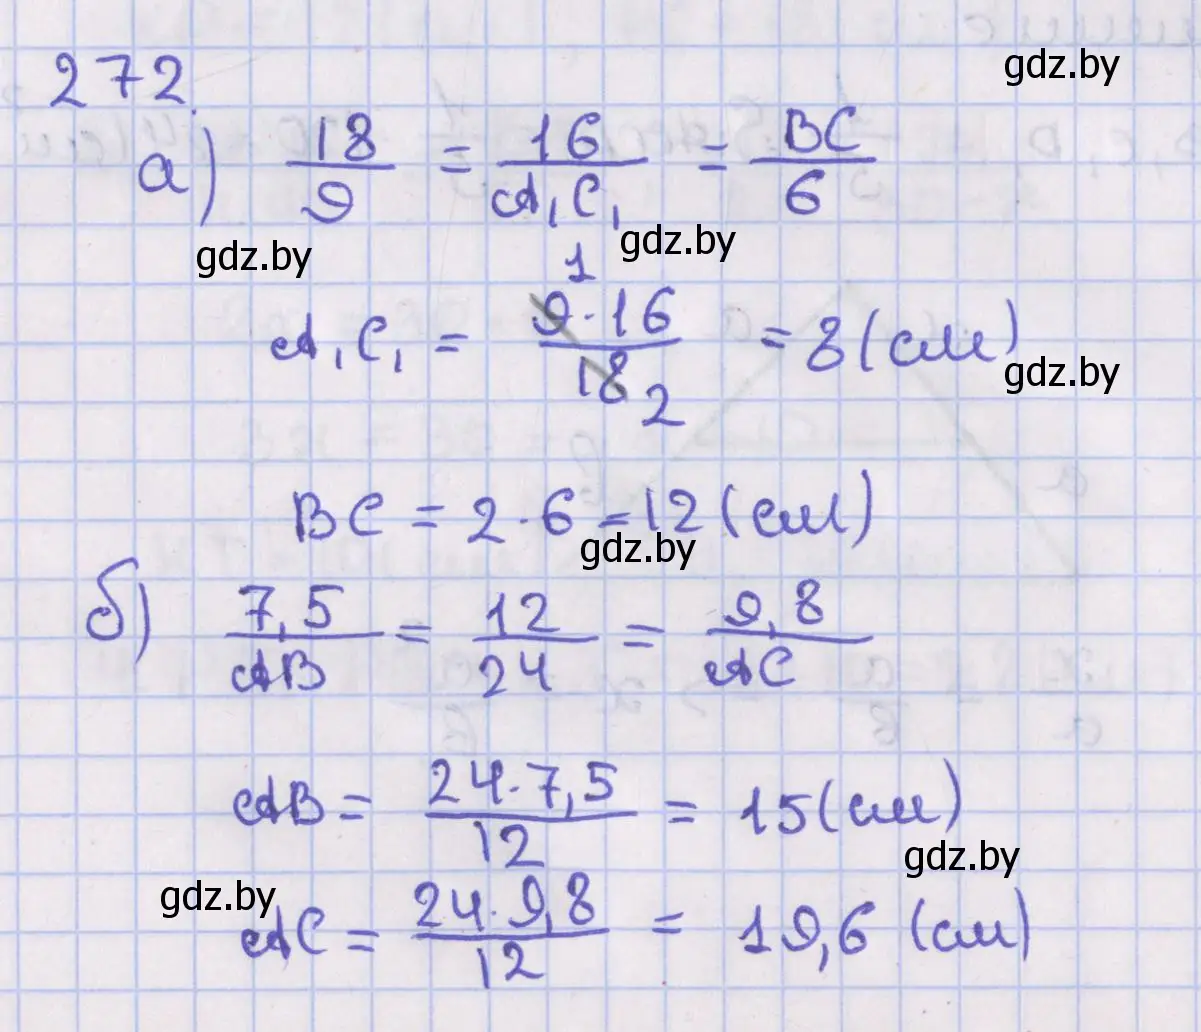 272.
gdz.by
а) 18/9 = 16/A₁C₁ = BC/6
gdz.by
gdz.by
A₁C₁ = 9·16/18 = 8 (см)
1
2
gdz.by
BC = 2·6 = 12 (см)
gdz.by
б) 7,5/AB = 12/24 = 9,8/AC
AB = 24·7,5/12 = 15 (см)
gdz.by
gdz.by
AC = 24·9,8/12 = 19,6 (см)